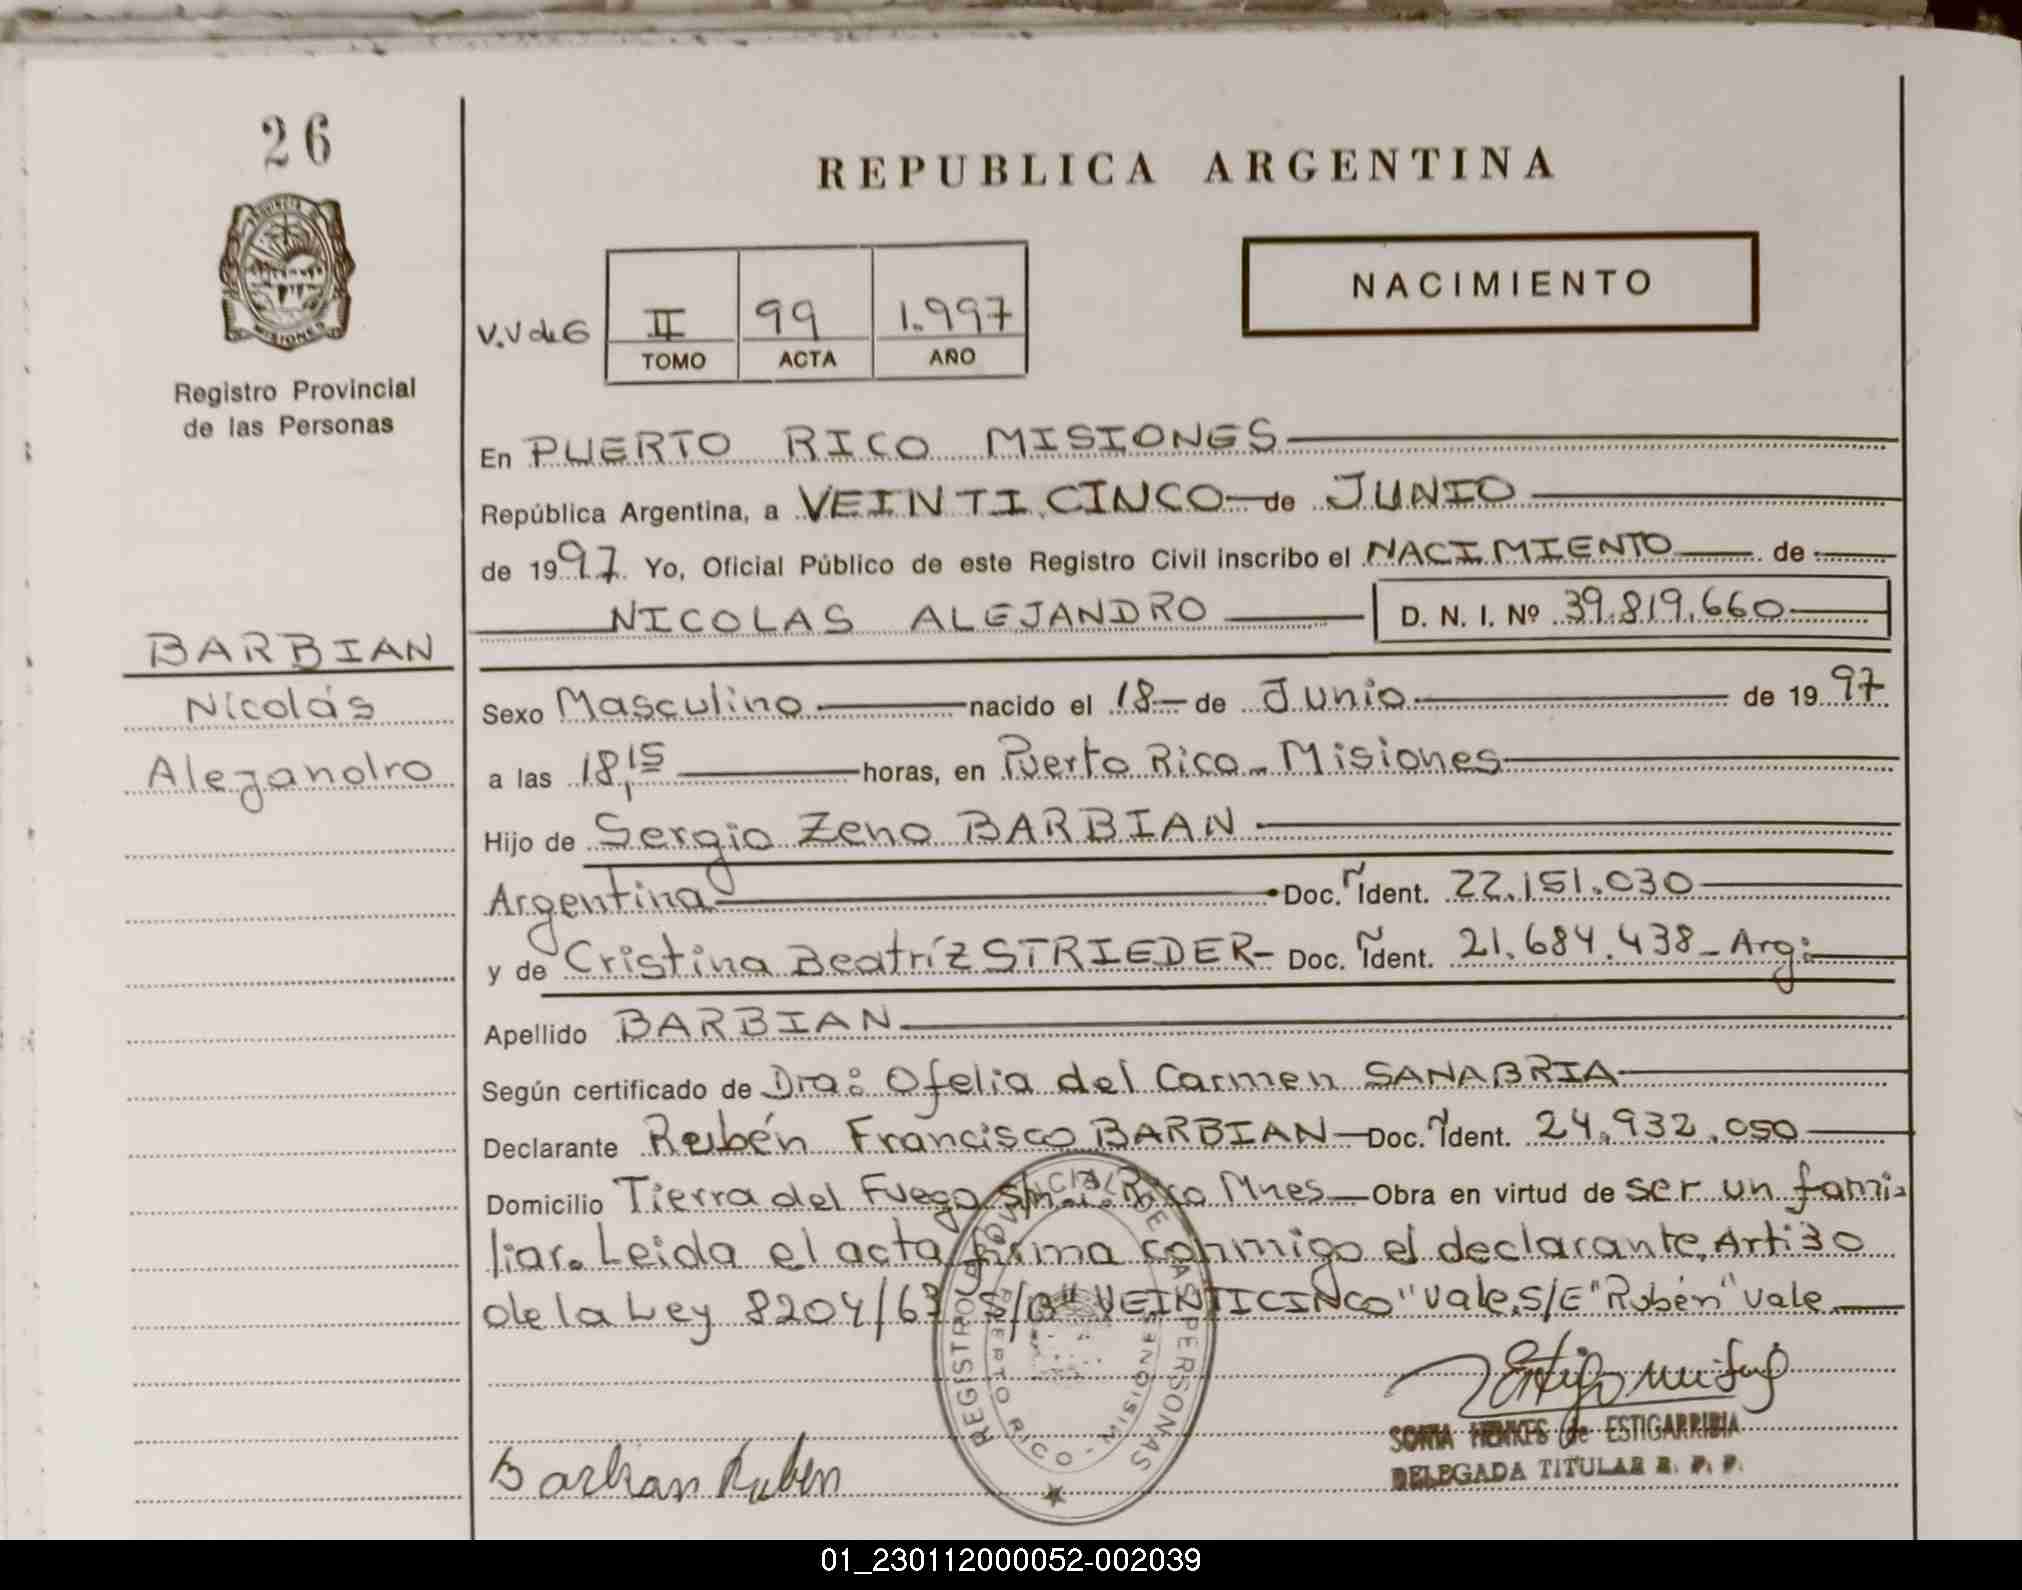 26
REPUBLICA ARGENTINA
NACIMIENTO
V.V de G
II 99 1.997
TOMO ACTA AÑO
MISIONES
Registro Provincial
de las Personas
En PUERTO RICO MISIONES
República Argentina, a VEINTICINCO de JUNIO
de 1997. Yo, Oficial Público de este Registro Civil inscribo el NACIMIENTO de
NICOLAS ALEJANDRO D. N. I. Nº 39.819.660
BARBIAN
Nicolás
Alejandro
Sexo Masculino nacido el 18 de Junio de 1997
a las 18,15 horas, en Puerto Rico - Misiones
Hijo de Sergio Zeno BARBIAN
Argentina Doc. Ident. 22.151.030
y de Cristina Beatríz STRIEDER - Doc. Ident. 21.684.438 - Arg:
Apellido BARBIAN
Según certificado de Dra: Ofelia del Carmen SANABRIA
Declarante Rubén Francisco BARBIAN Doc. Ident. 24.932.050
Domicilio Tierra del Fuego s/n Rico Mnes Obra en virtud de ser un fami-
liar. Leida el acta firma conmigo el declarante, Arti 30
de la Ley 8204/63 S/B "VEINTICINCO" Vale, S/E "Rubén" Vale
REGISTRO PROVINCIAL DE LAS PERSONAS
PUERTO RICO - MISIONES
Barbian Ruben
SONIA HENKES de ESTIGARRIBIA
DELEGADA TITULAR R. P. P.
01_230112000052-002039